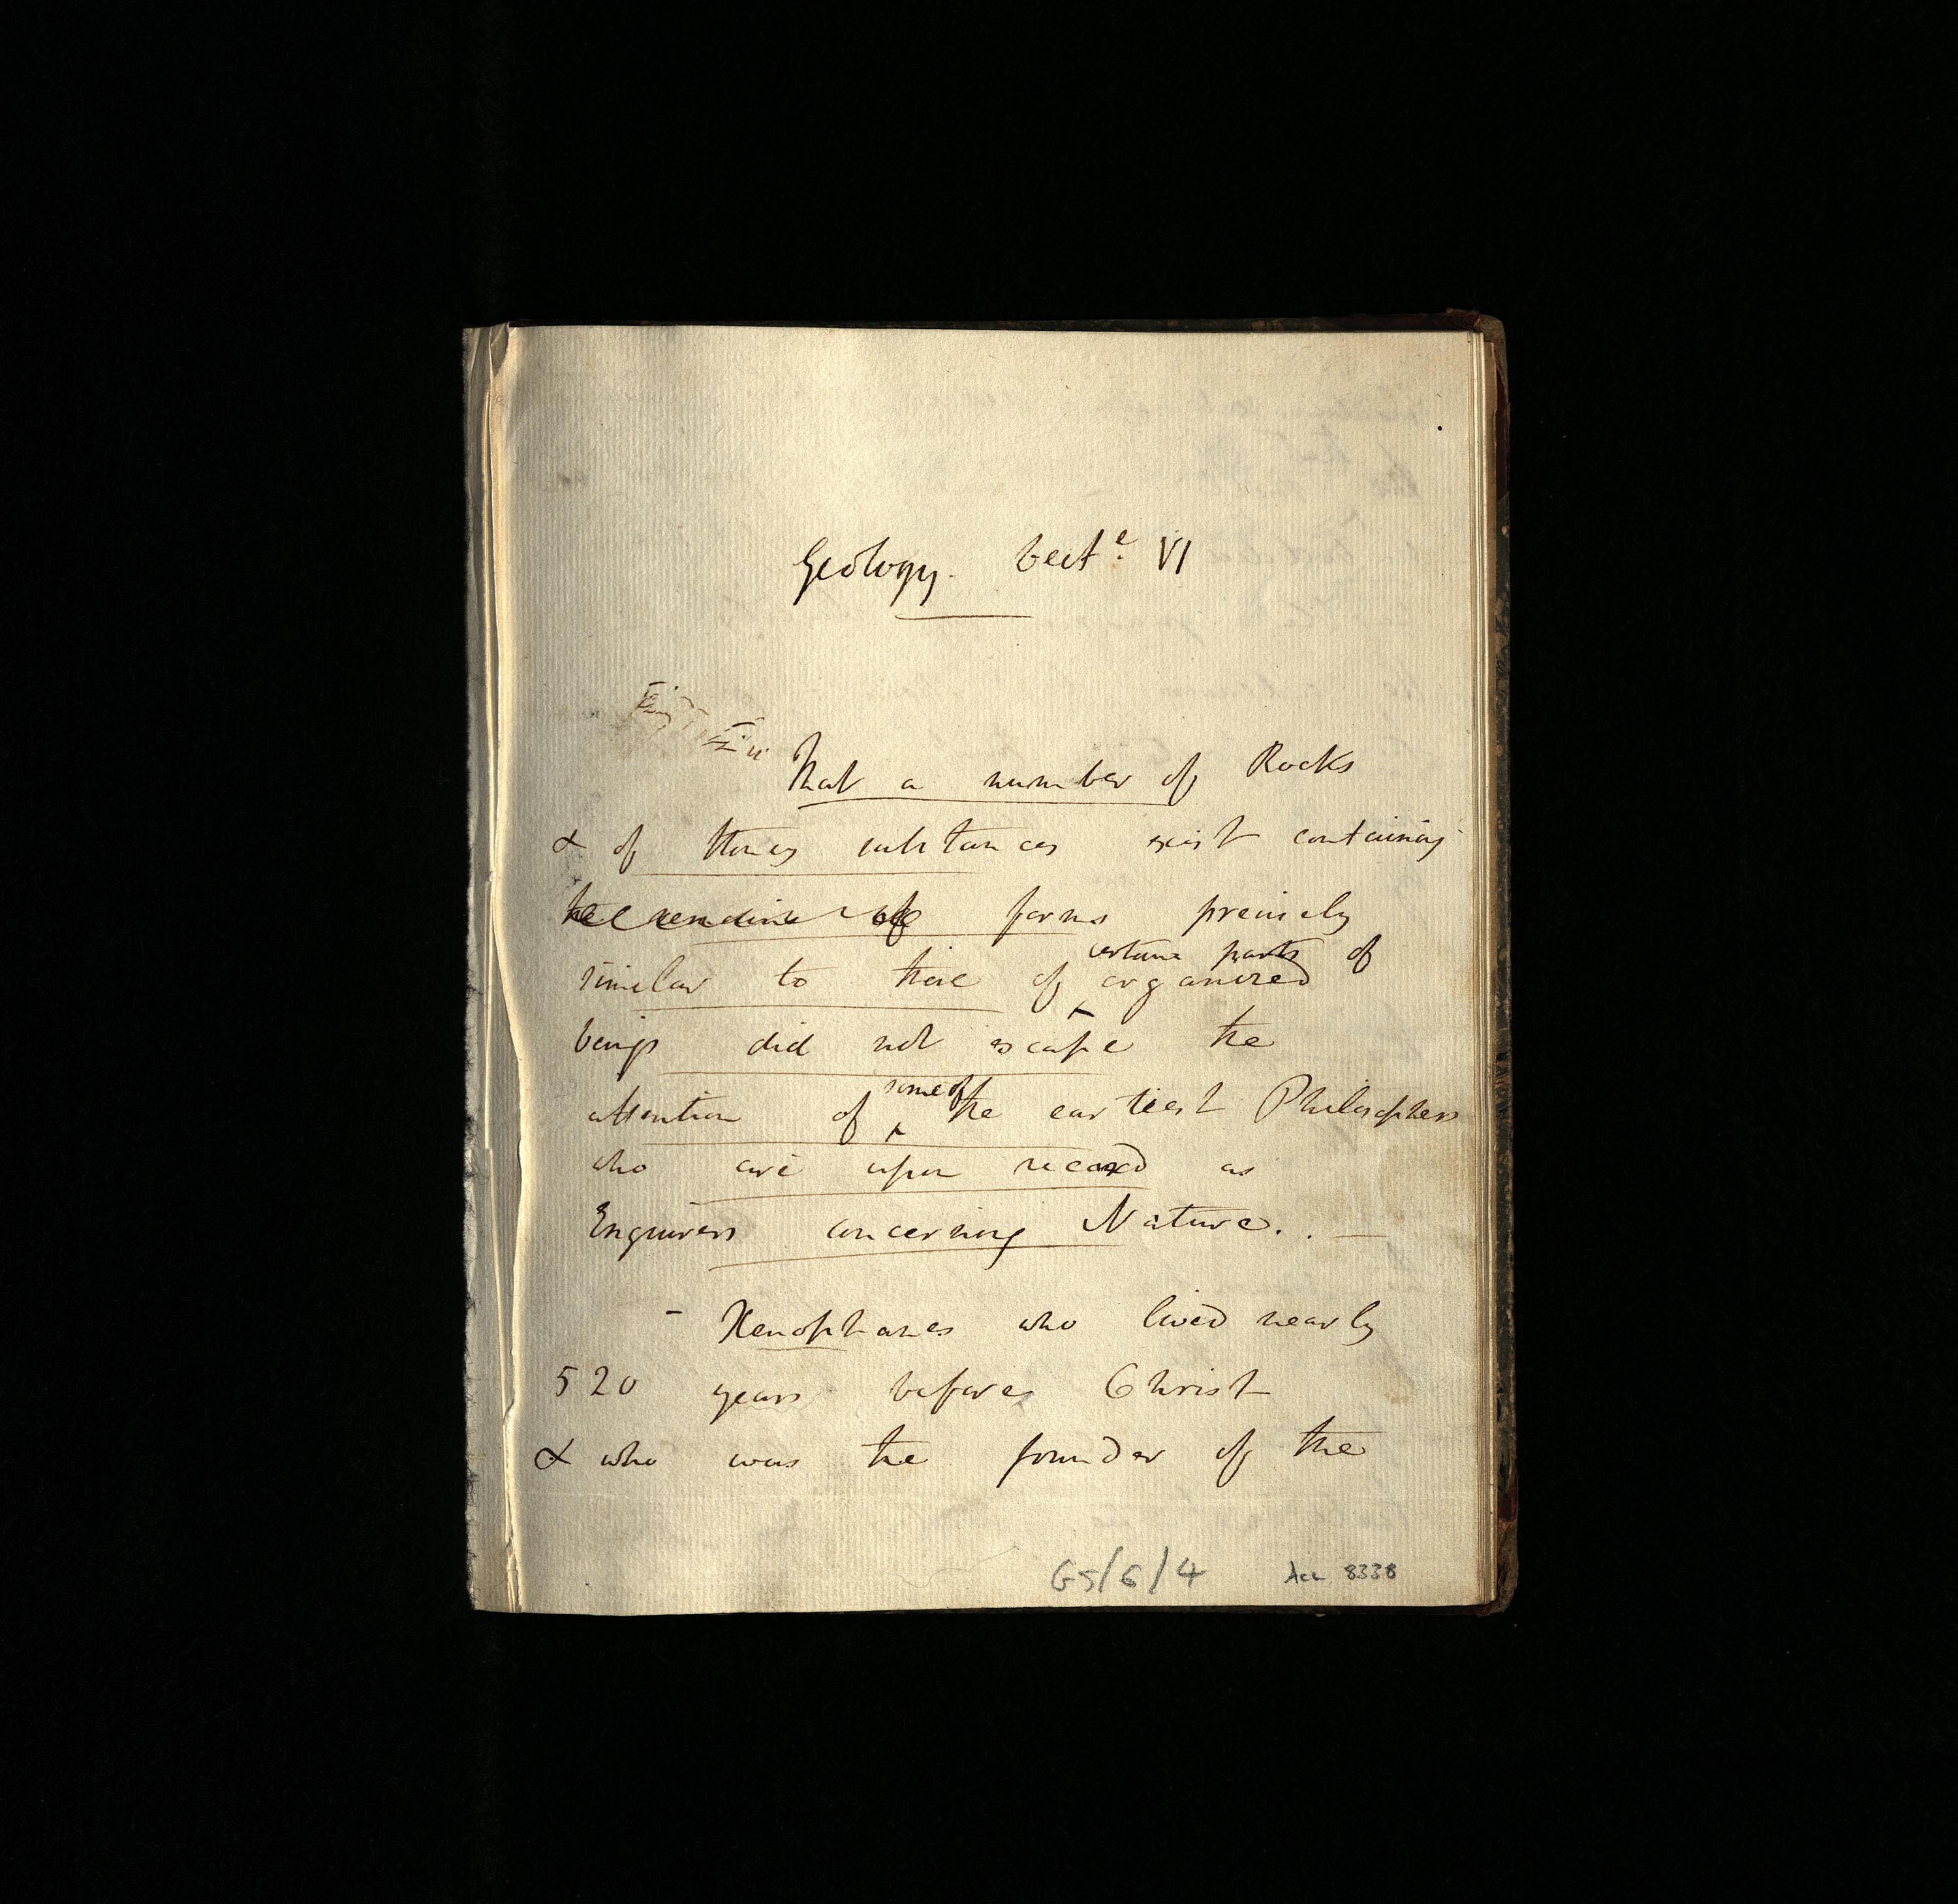 Geology. Lect.e VI
That a number of Rocks
& of stoney substances exist containing
the remains of forms precisely
certain parts of
similar to those of organized
beings did not escape the
some of
attention of the earliest Philosophers
who are upon record as
Enquirers concerning Nature. . —
- Xenophanes who lived nearly
520 years before Christ
& who was the founder of the
G5/6/4 Acc 8338